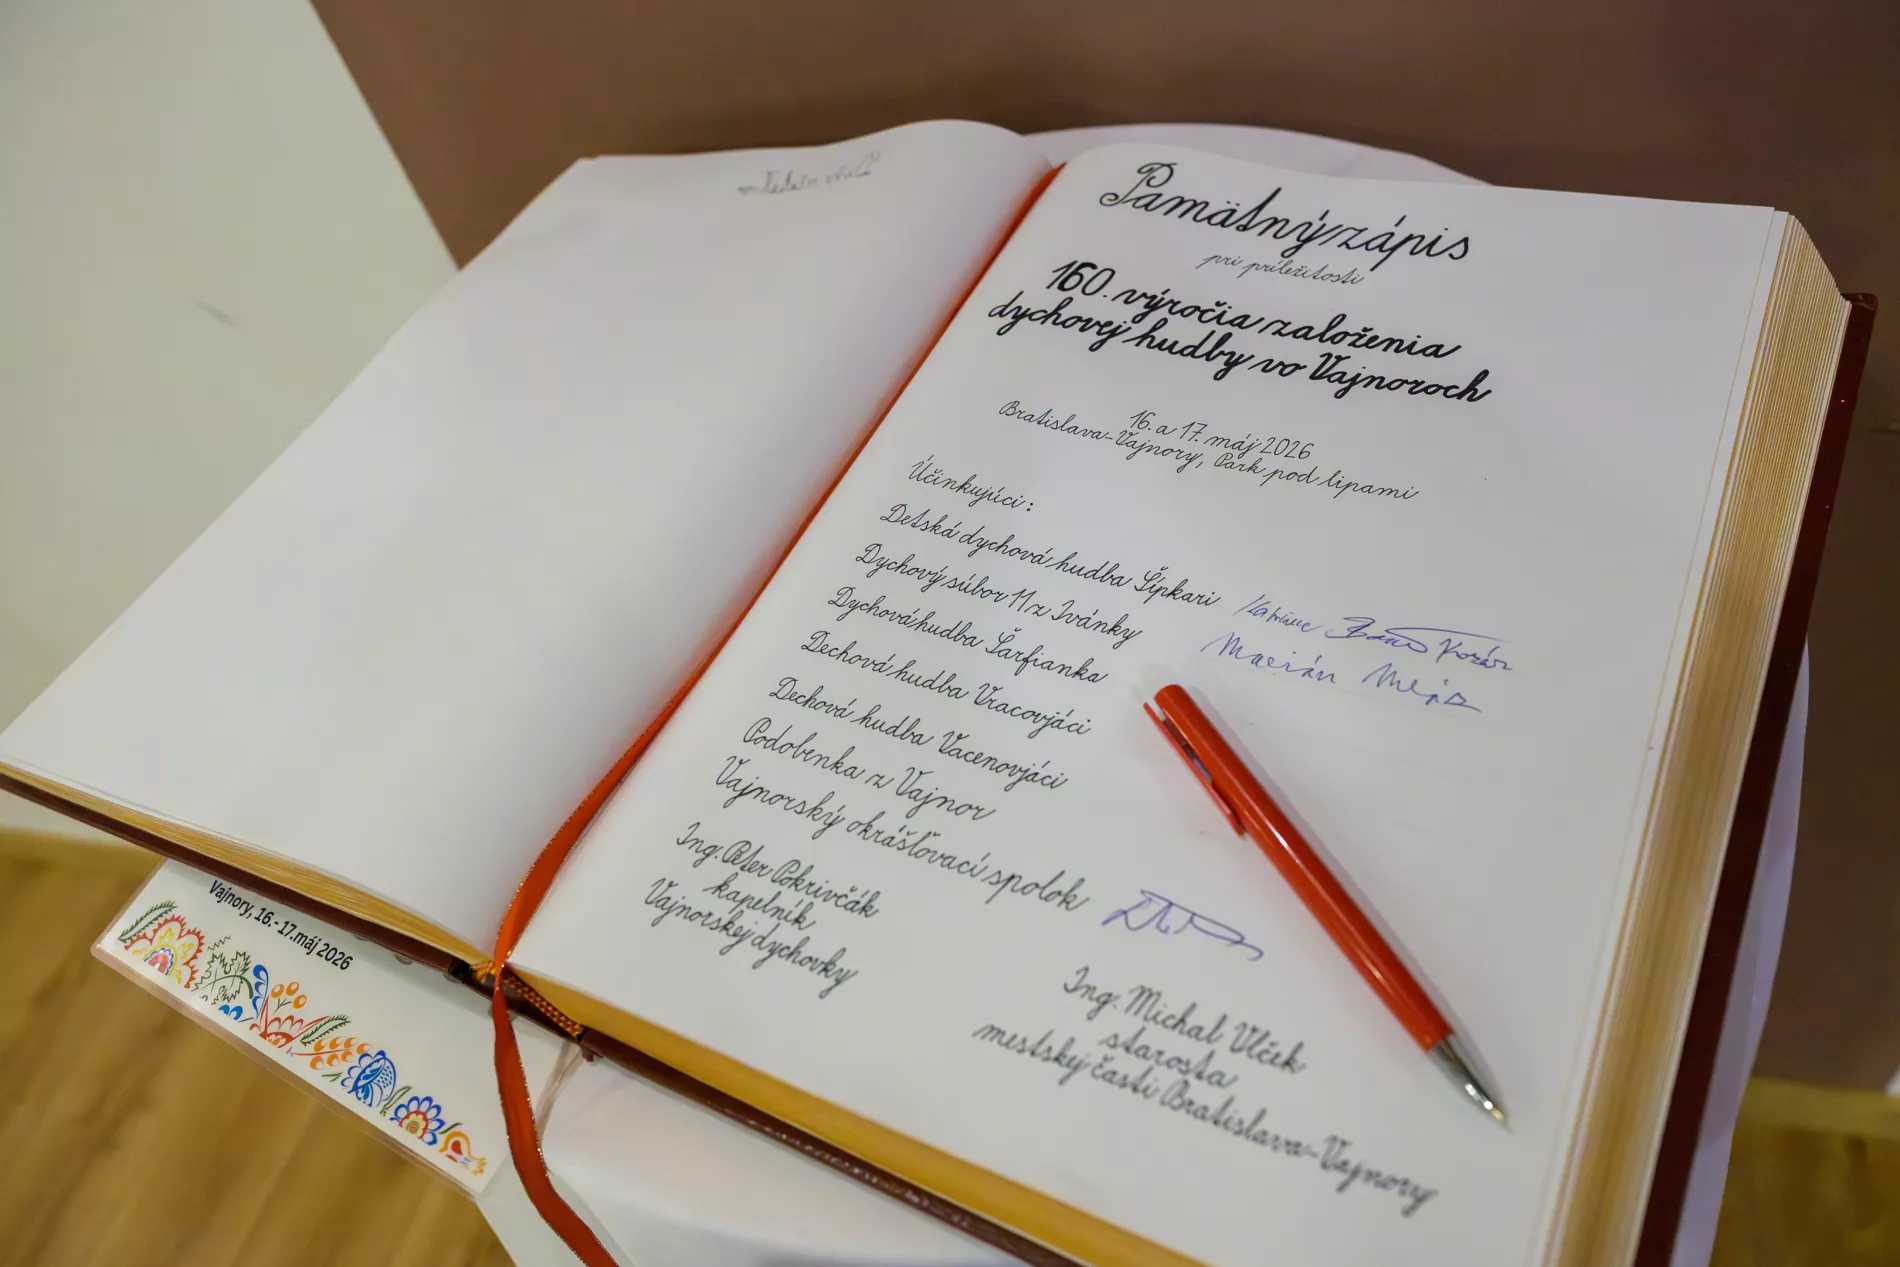 Pamätný zápis
pri príležitosti
160. výročia založenia
dychovej hudby vo Vajnoroch
16. a 17. máj 2026
Bratislava-Vajnory, Park pod lipami
Účinkujúci:
Detská dychová hudba Šípkari
Dychový súbor 11 z Ivánky
Dychová hudba Šarfianka
Marián
Dechová hudba Vracovjáci
Dechová hudba Vacenovjáci
Podobenka z Vajnor
Vajnorský okrášľovací spolok
Ing. Peter Pokrivčák
kapelník
Vajnorskej dychovky
Ing. Michal Vlček
starosta
mestskej časti Bratislava-Vajnory
Vajnory, 16.-17.máj 2026